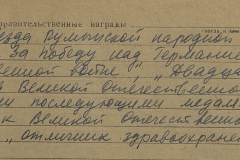 правительственные награды
зезда Румынской народной
За победу над Германие
венной войне", "Двадца
в Великой Отечественно
и последующими медал
к Великой Отечественно
"Отличник здравоохранен